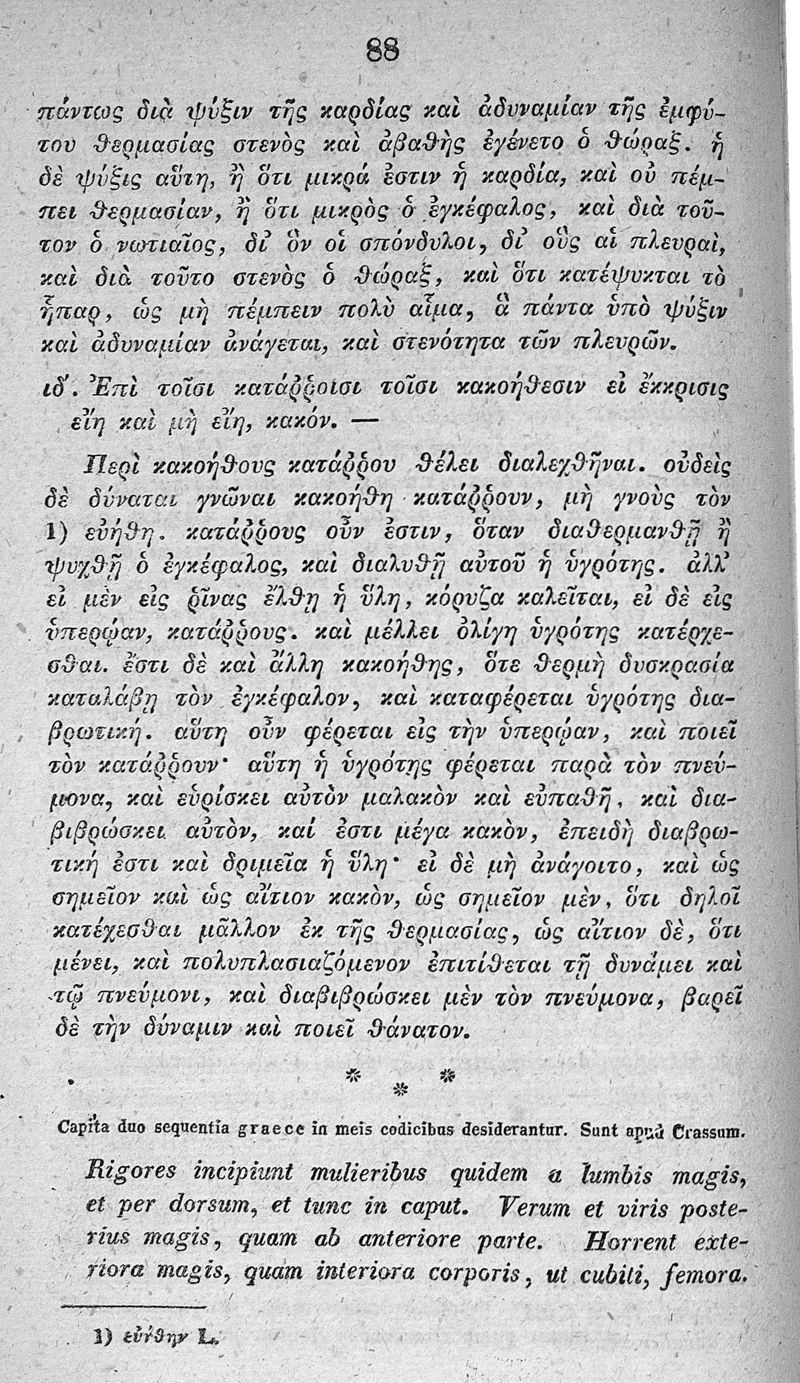 88
πάντως διὰ ψύξιν τῆς καρδίας καὶ ἀδυναμίαν τῆς ἐμφύ-
του θερμασίας στενὸς καὶ ἀβαθὴς ἐγένετο ὁ θώραξ. ἡ
δὲ ψύξις αὕτη, ἢ ὅτι μικρά ἐστιν ἡ καρδία, καὶ οὐ πέμ-
πει θερμασίαν, ἢ ὅτι μικρὸς ὁ ἐγκέφαλος, καὶ διὰ τοῦ-
τον ὁ νωτιαῖος, δι᾽ ὃν οἱ σπόνδυλοι, δι᾽ οὓς αἱ πλευραὶ,
καὶ διὰ τοῦτο στενὸς ὁ θώραξ, καὶ ὅτι κατέψυκται τὸ
ἧπαρ, ὡς μὴ πέμπειν πολὺ αἷμα, ἃ πάντα ὑπὸ ψύξιν
καὶ ἀδυναμίαν ἀνάγεται, καὶ στενότητα τῶν πλευρῶν.
ιδ΄. Ἐπὶ τοῖσι κατάῤῥοισι τοῖσι κακοήθεσιν εἰ ἔκκρισις
εἴη καὶ μὴ εἴη, κακόν. —
Περὶ κακοήθους κατάῤῥου θέλει διαλεχθῆναι. οὐδεὶς
δὲ δύναται γνῶναι κακοήθη κατάῤῥουν, μὴ γνοὺς τὸν
1) εὐήθη. κατάῤῥους οὖν ἐστιν, ὅταν διαθερμανθῇ ἢ
ψυχθῇ ὁ ἐγκέφαλος, καὶ διαλυθῇ αὐτοῦ ἡ ὑγρότης. ἀλλ᾽
εἰ μὲν εἰς ῥῖνας ἔλθῃ ἡ ὕλη, κόρυζα καλεῖται, εἰ δὲ εἰς
ὑπερῴαν, κατάῤῥους. καὶ μέλλει ὀλίγη ὑγρότης κατέρχε-
σθαι. ἔστι δὲ καὶ ἄλλη κακοήθης, ὅτε θερμὴ δυσκρασία
καταλάβῃ τὸν ἐγκέφαλον, καὶ καταφέρεται ὑγρότης δια-
βρωτική. αὕτη οὖν φέρεται εἰς τὴν ὑπερῴαν, καὶ ποιεῖ
τὸν κατάῤῥουν· αὕτη ἡ ὑγρότης φέρεται παρὰ τὸν πνεύ-
μονα, καὶ εὑρίσκει αὐτὸν μαλακὸν καὶ εὐπαθῆ, καὶ δια-
βιβρώσκει αὐτὸν, καί ἐστι μέγα κακὸν, ἐπειδὴ διαβρω-
τική ἐστι καὶ δριμεῖα ἡ ὕλη· εἰ δὲ μὴ ἀνάγοιτο, καὶ ὡς
σημεῖον καὶ ὡς αἴτιον κακὸν, ὡς σημεῖον μὲν, ὅτι δηλοῖ
κατέχεσθαι μᾶλλον ἐκ τῆς θερμασίας, ὡς αἴτιον δὲ, ὅτι
μένει, καὶ πολυπλασιαζόμενον ἐπιτίθεται τῇ δυνάμει καὶ
τῷ πνεύμονι, καὶ διαβιβρώσκει μὲν τὸν πνεύμονα, βαρεῖ
δὲ τὴν δύναμιν καὶ ποιεῖ θάνατον.
* * *
Capita duo sequentia graece in meis codicibus desiderantur. Sunt apud Crassum.
Rigores incipiunt mulieribus quidem a lumbis magis,
et per dorsum, et tunc in caput. Verum et viris poste-
rius magis, quam ab anteriore parte. Horrent exte-
riora magis, quam interiora corporis, ut cubiti, femora.
1) εὐήθην L.